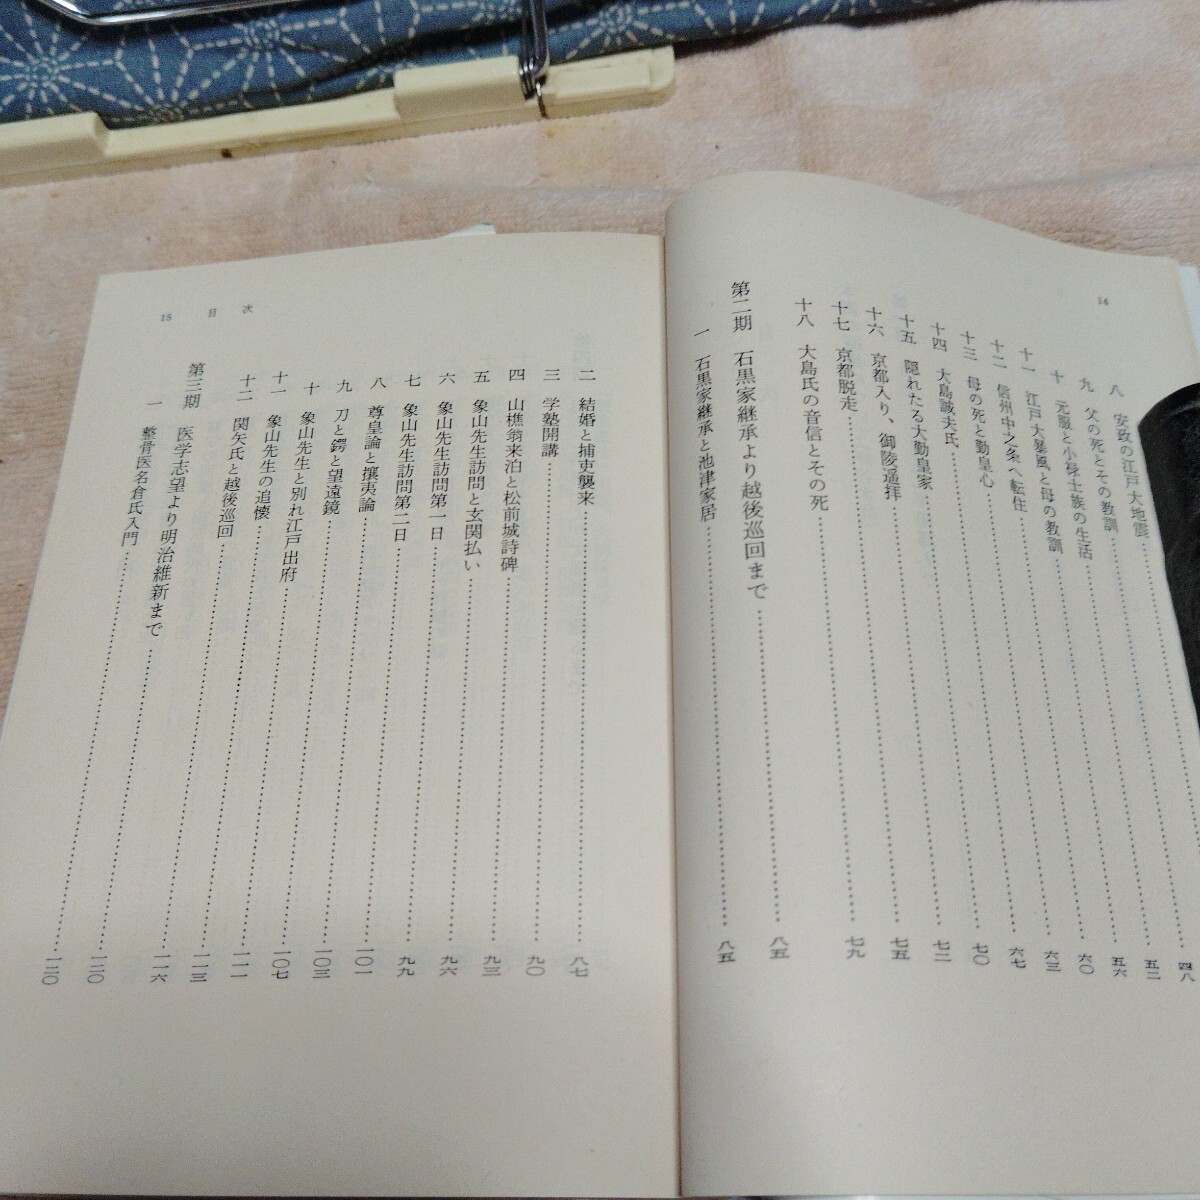 14
八 安政の江戸大地震
九 父の死とその教訓……四八
十 元服と小禄士族の生活……五二
十一 江戸大暴風と母の教訓……五六
十二 信州中之条へ転住……六〇
十三 母の死と勤皇心……六三
十四 大島誠夫氏……六七
十五 隠れたる大勤皇家……七〇
十六 京都入り、御陵遥拝……七二
十七 京都脱走……七五
十八 大島氏の音信とその死……七九
第二期 石黒家継承より越後巡回まで……八五
一 石黒家継承と池津家居……八五
15 目次
二 結婚と捕吏襲来……八七
三 学塾開講……九〇
四 山樵翁来泊と松前城詩碑……九三
五 象山先生訪問と玄関払い……九六
六 象山先生訪問第一日……九九
七 象山先生訪問第二日……一〇一
八 尊皇論と攘夷論……一〇三
九 刀と鍔と望遠鏡……一〇七
十 象山先生と別れ江戸出府……一一一
十一 象山先生の追懐……一一三
十二 関矢氏と越後巡回……一一六
第三期 医学志望より明治維新まで……一二〇
一 整骨医名倉氏入門……一二〇